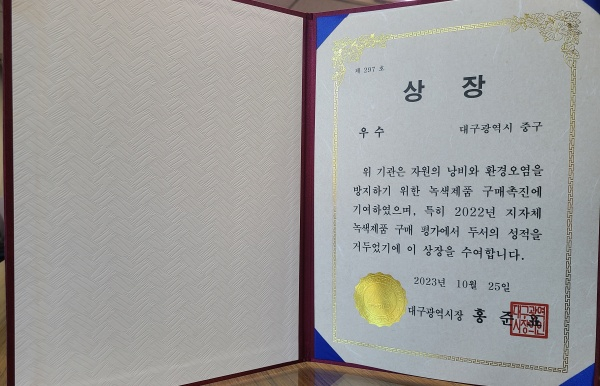 제 297 호
상 장
우수 대구광역시 중구
위 기관은 자원의 낭비와 환경오염을
방지하기 위한 녹색제품 구매촉진에
기여하였으며, 특히 2022년 지자체
녹색제품 구매 평가에서 두서의 성적을
거두었기에 이 상장을 수여합니다.
2023년 10월 25일
대구광역시장 홍 준 표
대구광역
시장의인